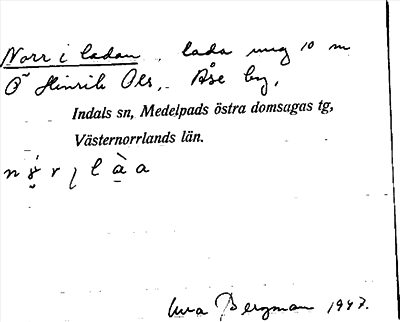 Norr i ladan, lada ung 10 m
O Hinrik Ols, Åse by,
Indals sn, Medelpads östra domsagas tg,
Västernorrlands län.
Bergman 1947.